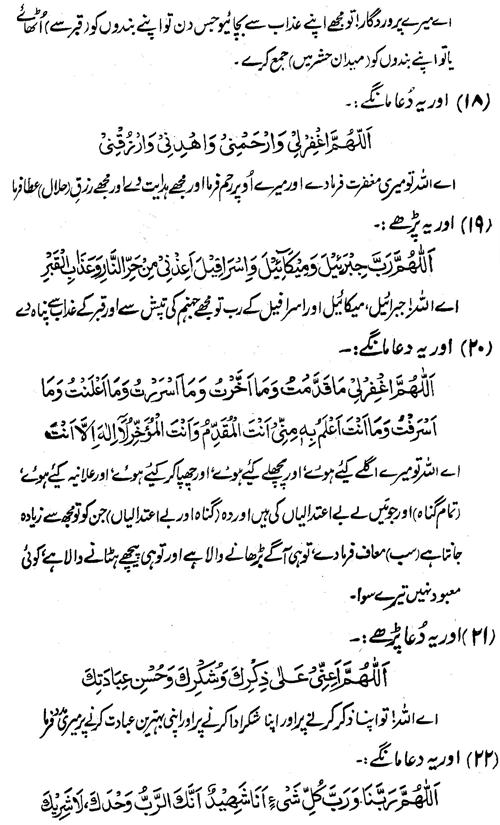 اے میرے پروردگار! تو مجھے اپنے عذاب سے بچائیو جس دن تو اپنے بندوں کو (قبر سے) اُٹھائے
یا تو اپنے بندوں کو (میدان حشر میں) جمع کرے۔
(۱۸) اور یہ دُعا مانگے :۔
اَللّٰهُمَّ اغْفِرْلِیْ وَارْحَمْنِیْ وَاهْدِنِیْ وَارْزُقْنِیْ
اے اللہ تو میری مغفرت فرما دے اور میرے اُوپر رحم فرما اور مجھے ہدایت دے اور مجھے رزق (حلال) عطا فرما
(۱۹) اور یہ پڑھے :۔
اَللّٰهُمَّ رَبَّ جِبْرَئِیْلَ وَمِیْکَآئِیْلَ وَاِسْرَافِیْلَ اَعِذْنِیْ مِنْ حَرِّ النَّارِ وَعَذَابِ الْقَبْرِ
اے اللہ! جبرائیل، میکائیل اور اسرافیل کے رب تو مجھے جہنم کی تپش سے اور قبر کے عذاب سے پناہ دے
(۲۰) اور یہ دعا مانگے :۔
اَللّٰهُمَّ اغْفِرْلِیْ مَا قَدَّمْتُ وَمَا اَخَّرْتُ وَمَا اَسْرَرْتُ وَمَا اَعْلَنْتُ وَمَا
اَسْرَفْتُ وَمَا اَنْتَ اَعْلَمُ بِهٖ مِنِّیْ اَنْتَ الْمُقَدِّمُ وَاَنْتَ الْمُؤَخِّرُ لَا اِلٰهَ اِلَّا اَنْتَ
اے اللہ تو میرے اگلے کیئے ہوئے، اور پچھلے کیئے ہوئے، اور چھپا کر کیئے ہوئے، اور علانیہ کیئے ہوئے،
(تمام گناہ) اور جو میں نے بے اعتدالیاں کی ہیں اور وہ (گناہ اور بے اعتدالیاں) جن کو تو مجھ سے زیادہ
جانتا ہے (سب) معاف فرما دے، تو ہی آگے بڑھانے والا ہے اور تو ہی پیچھے ہٹانے والا ہے، کوئی
معبود نہیں تیرے سوا۔
(۲۱) اور یہ دُعا پڑھے :۔
اَللّٰهُمَّ اَعِنِّیْ عَلٰی ذِکْرِكَ وَشُکْرِكَ وَحُسْنِ عِبَادَتِكَ
اے اللہ! تو اپنا ذکر کرنے پر اور اپنا شکر ادا کرنے پر اور اپنی بہترین عبادت کرنے پر میری مدد فرما
(۲۲) اور یہ دعا مانگے :۔
اَللّٰهُمَّ رَبَّنَا وَرَبَّ کُلِّ شَیْءٍ اَنَا شَهِیْدٌ اَنَّكَ الرَّبُّ وَحْدَكَ، لَا شَرِیْكَ